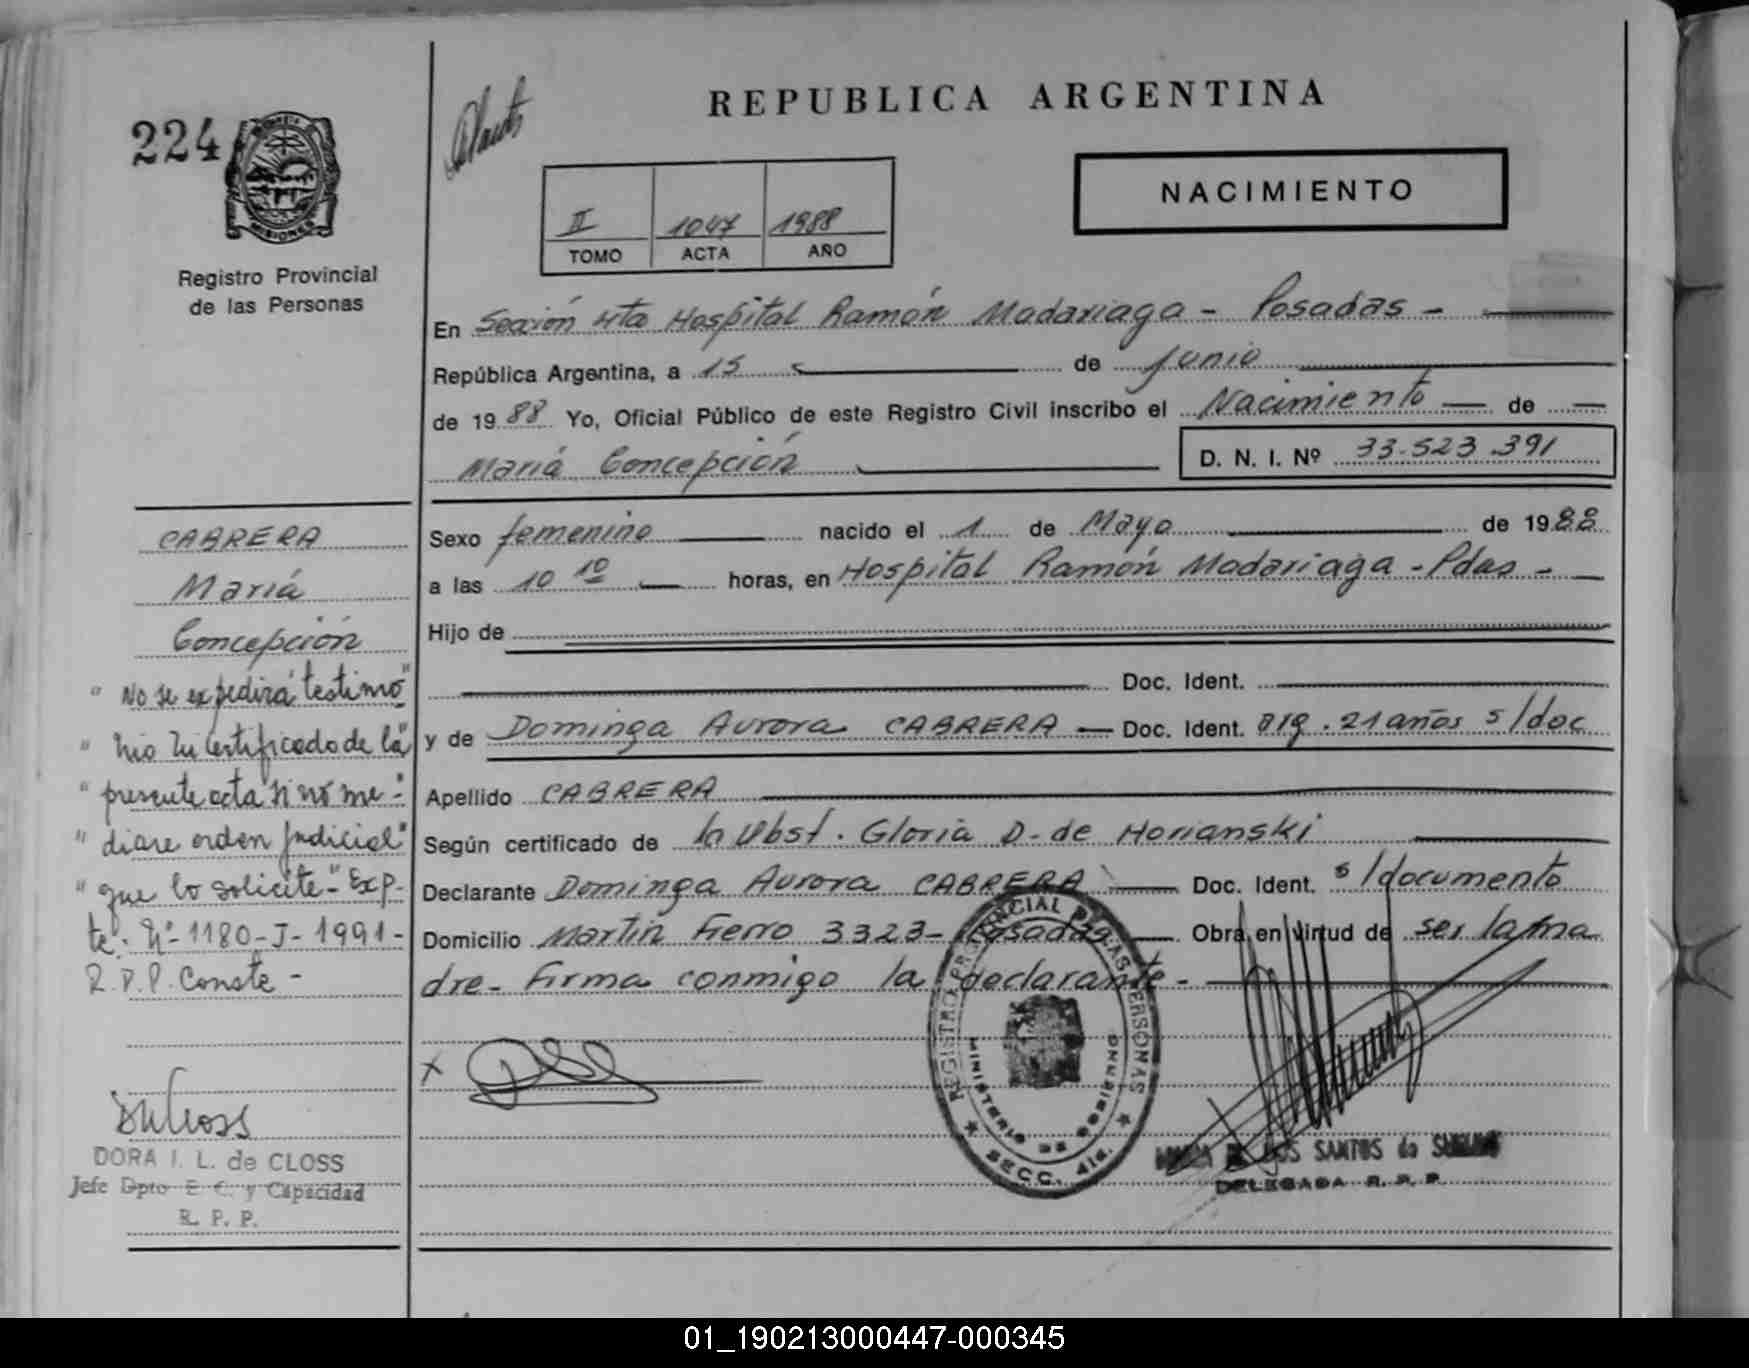 224
MISIONES
Registro Provincial
de las Personas
REPUBLICA ARGENTINA
NACIMIENTO
II 1047 1988
TOMO ACTA AÑO
En Sección 4ta Hospital Ramón Madariaga - Posadas -
República Argentina, a 15 de junio
de 1988 Yo, Oficial Público de este Registro Civil inscribo el Nacimiento de
Mariá Concepción D. N. I. Nº 33.523.391
Sexo femenino nacido el 1 de Mayo de 1988
a las 10 10 horas, en Hospital Ramón Madariaga - Pdas -
Hijo de
Doc. Ident.
y de Dominga Aurora CABRERA Doc. Ident. arg. 21 años s/doc
Apellido CABRERA
Según certificado de la Obst. Gloria D. de Horianski
Declarante Dominga Aurora CABRERA Doc. Ident. s/documento
Domicilio Martín Fierro 3323 - Posadas Obra en virtud de ser la ma
dre - Firma conmigo la declarante -
CABRERA
Mariá
Concepción
"No se expedirá testimo"
"nio ni certificado de la"
"presente acta si no me-"
"diare orden judicial"
"que lo solicite -" Exp-
te. Nº 1180-J-1991-
R.P.P. Conste -
DORA I. L. de CLOSS
Jefe Dpto E. C. y Capacidad
R. P. P.
x
REGISTRO PROVINCIAL DE LAS PERSONAS
MINISTERIO DE GOBIERNO
SECC. 4ta.
DE LOS SANTOS de
DELEGADA R. P. P.
01_190213000447-000345